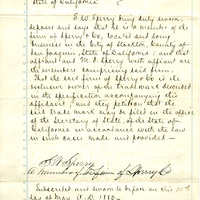 State of California
S. W. Sperry being duly sworn,
deposes and says that he is a member of the
firm of Sperry & Co, located and doing
business in the City of Stockton, County of
San Joaquin, State of California; and that
affiant and S. W. Sperry with affiant are the
members comprising said firm;
That the said firm of Sperry & Co is the
exclusive owner of the trademark described
in the specification accompanying this
affidavit; and they petition that the
said trade mark may be filed in the office
of the Secretary of State, of the State of
California in accordance with the law
in such cases made and provided —
S W Sperry
a member of the firm of Sperry & Co
Subscribed and sworn to before me this 20th
day of May A.D. 1883